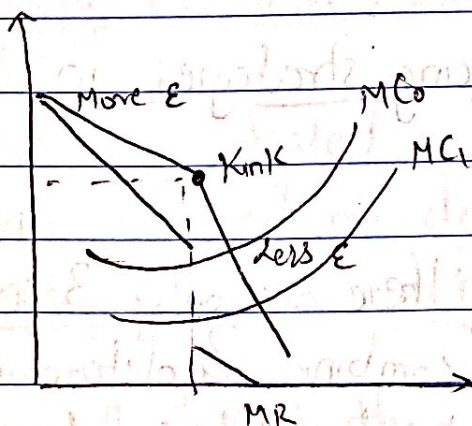 More ε
MC₀
Kink
MC₁
Less ε
MR